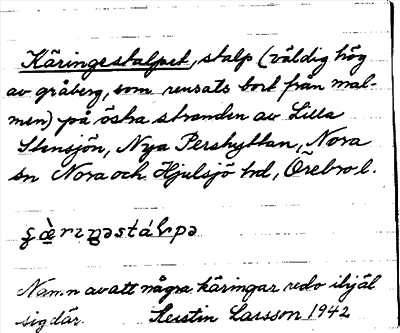 Käringestalpet, stalp (väldig hög
av gråberg, som rensats bort från mal-
men) på östra stranden av Lilla
Stensjön, Nya Pershyttan, Nora
sn Nora och Hjulsjö hd, Örebro l.
Namn av att några käringar redo ihjäl
sig där. Kerstin Larsson 1942